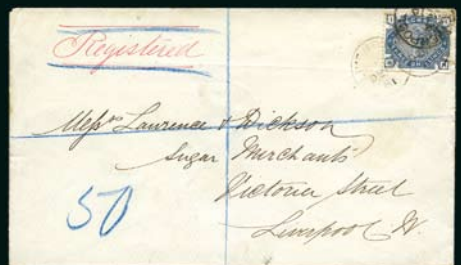 Registered
Messrs Lawrence & Dickson
Sugar Merchants
Victoria Street
Liverpool W.
50